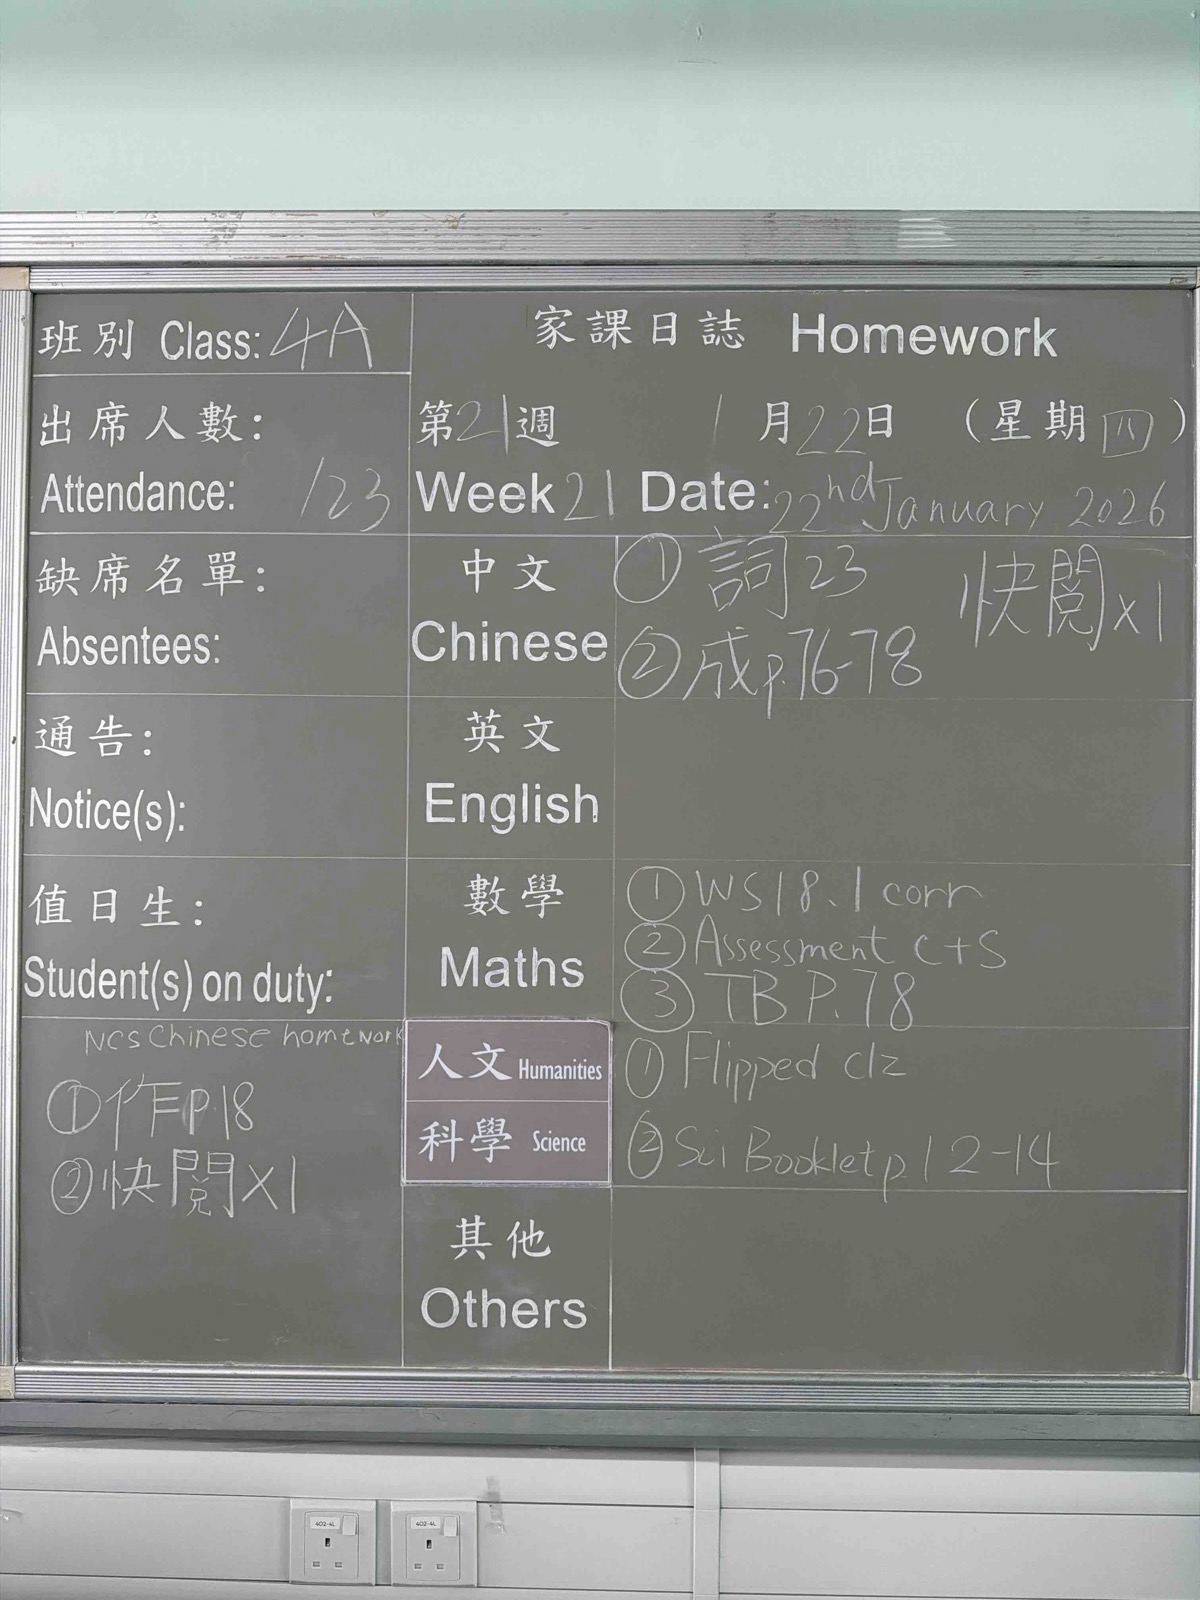 班別 Class: 4A
家課日誌 Homework
出席人數:
Attendance: /23
第21週 1月22日 (星期四)
Week 21 Date: 22nd January 2026
缺席名單:
Absentees:
中文
Chinese
① 詞 23 快閱 x1
② 成 p.76-78
通告:
Notice(s):
英文
English
值日生:
Student(s) on duty:
數學
Maths
① WS 18.1 corr
② Assessment c+s
③ TB P.78
NCS Chinese homework
① 作 P.18
② 快閱 x1
人文 Humanities
① Flipped clz
科學 Science
② Sci Booklet p.12-14
其他
Others
402-4L
402-4L